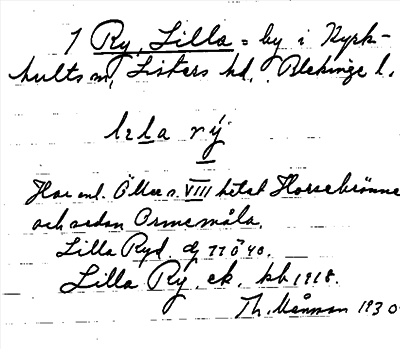 1 Ry, Lilla = by i Kyrk-
hults sn, Listers hd, Blekinge l.
lɩla rý
Har enl. Öller s. VIII hetat Horsabrönne
och sedan Ormemåla.
Lilla Ryd. dj 77 Ö 40.
Lilla Ry. ek. kb 1918.
Th. Månsson 1930